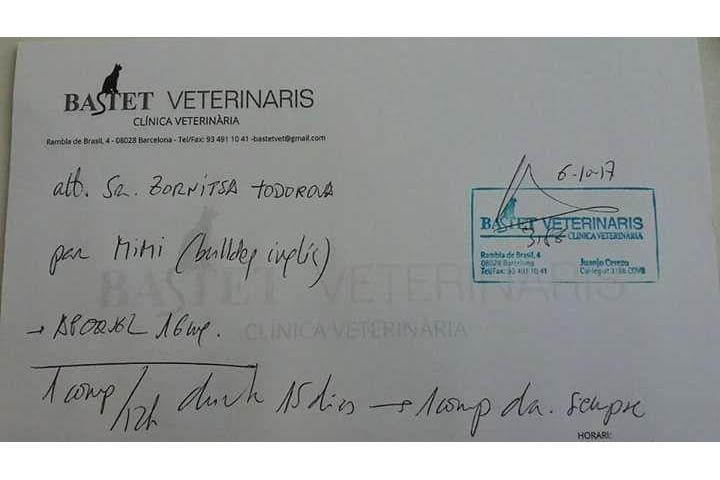 BASTET VETERINARIS
CLÍNICA VETERINÀRIA
Rambla de Brasil, 4 - 08028 Barcelona - Tel/Fax: 93 491 10 41 -bastetvet@gmail.com
att. Sr. ZORNITSA TODOROVA
6-10-17
BASTET VETERINARIS
3186
CLINICA VETERINARIA
Rambla de Brasil, 4
08028 Barcelona
Tel/Fax: 93 491 10 41
Juanjo Cerezo
Col·legiat 3186 COVB
par MIMI (bulldog inglés)
BASTET VETERINARIS
CLÍNICA VETERINÀRIA
→ APOQUEL 16mg.
1 comp/12h 15 dias → 1 comp dia. sempre
HORARI: